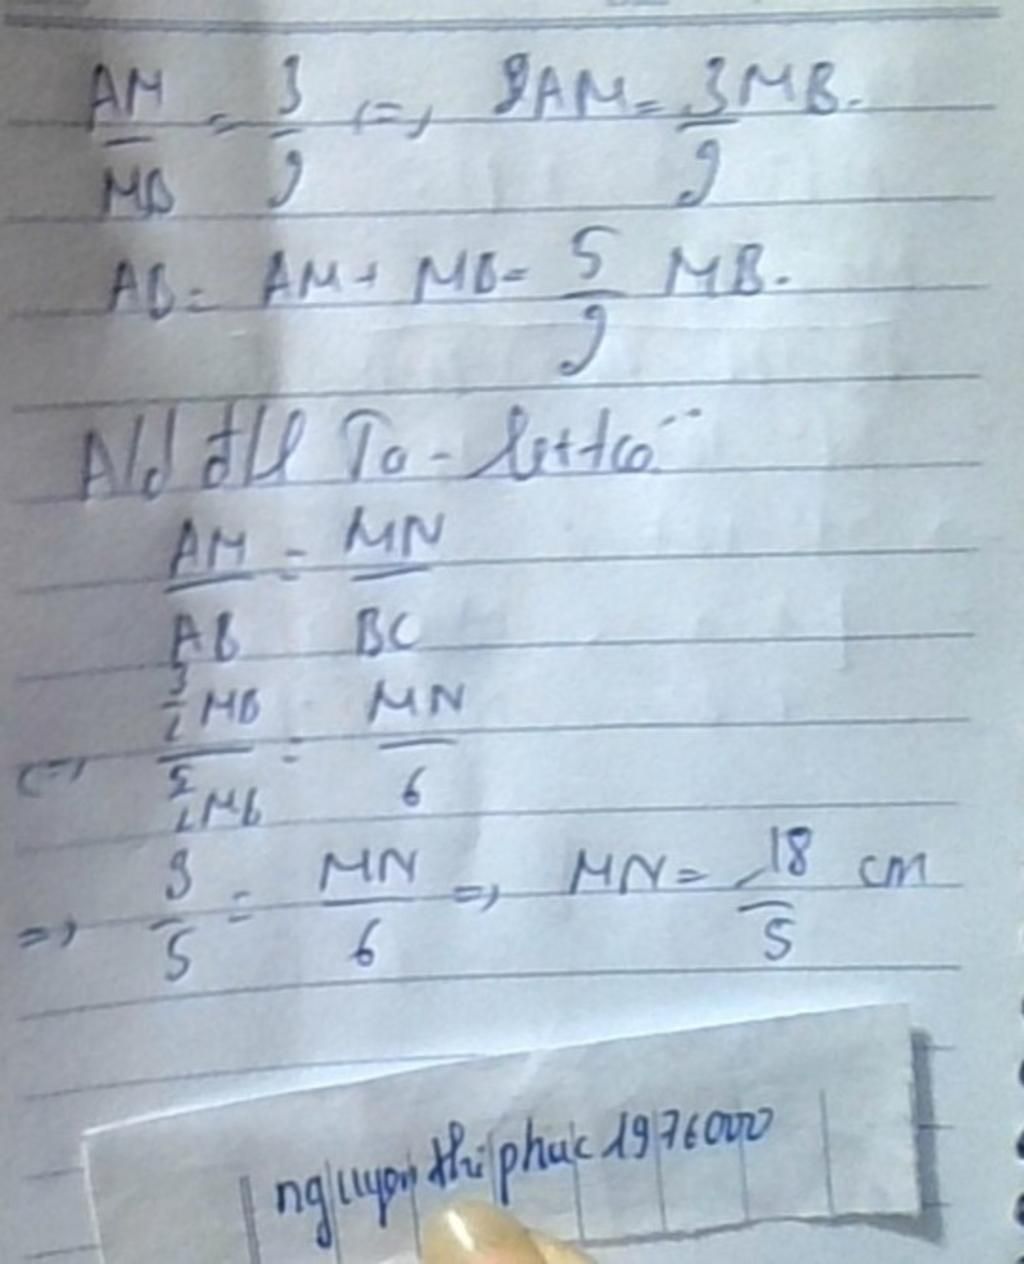 AM/MB = 3/2 <=> 2AM = 3/2 MB.
AB = AM + MB = 5/2 MB.
Ald đ/l Ta-let tco
AM/AB = MN/BC
<=> 3/2 MB / 5/2 MB = MN/6
=> 3/5 = MN/6 => MN = 18/5 cm
nguyen thi phuc 1976000